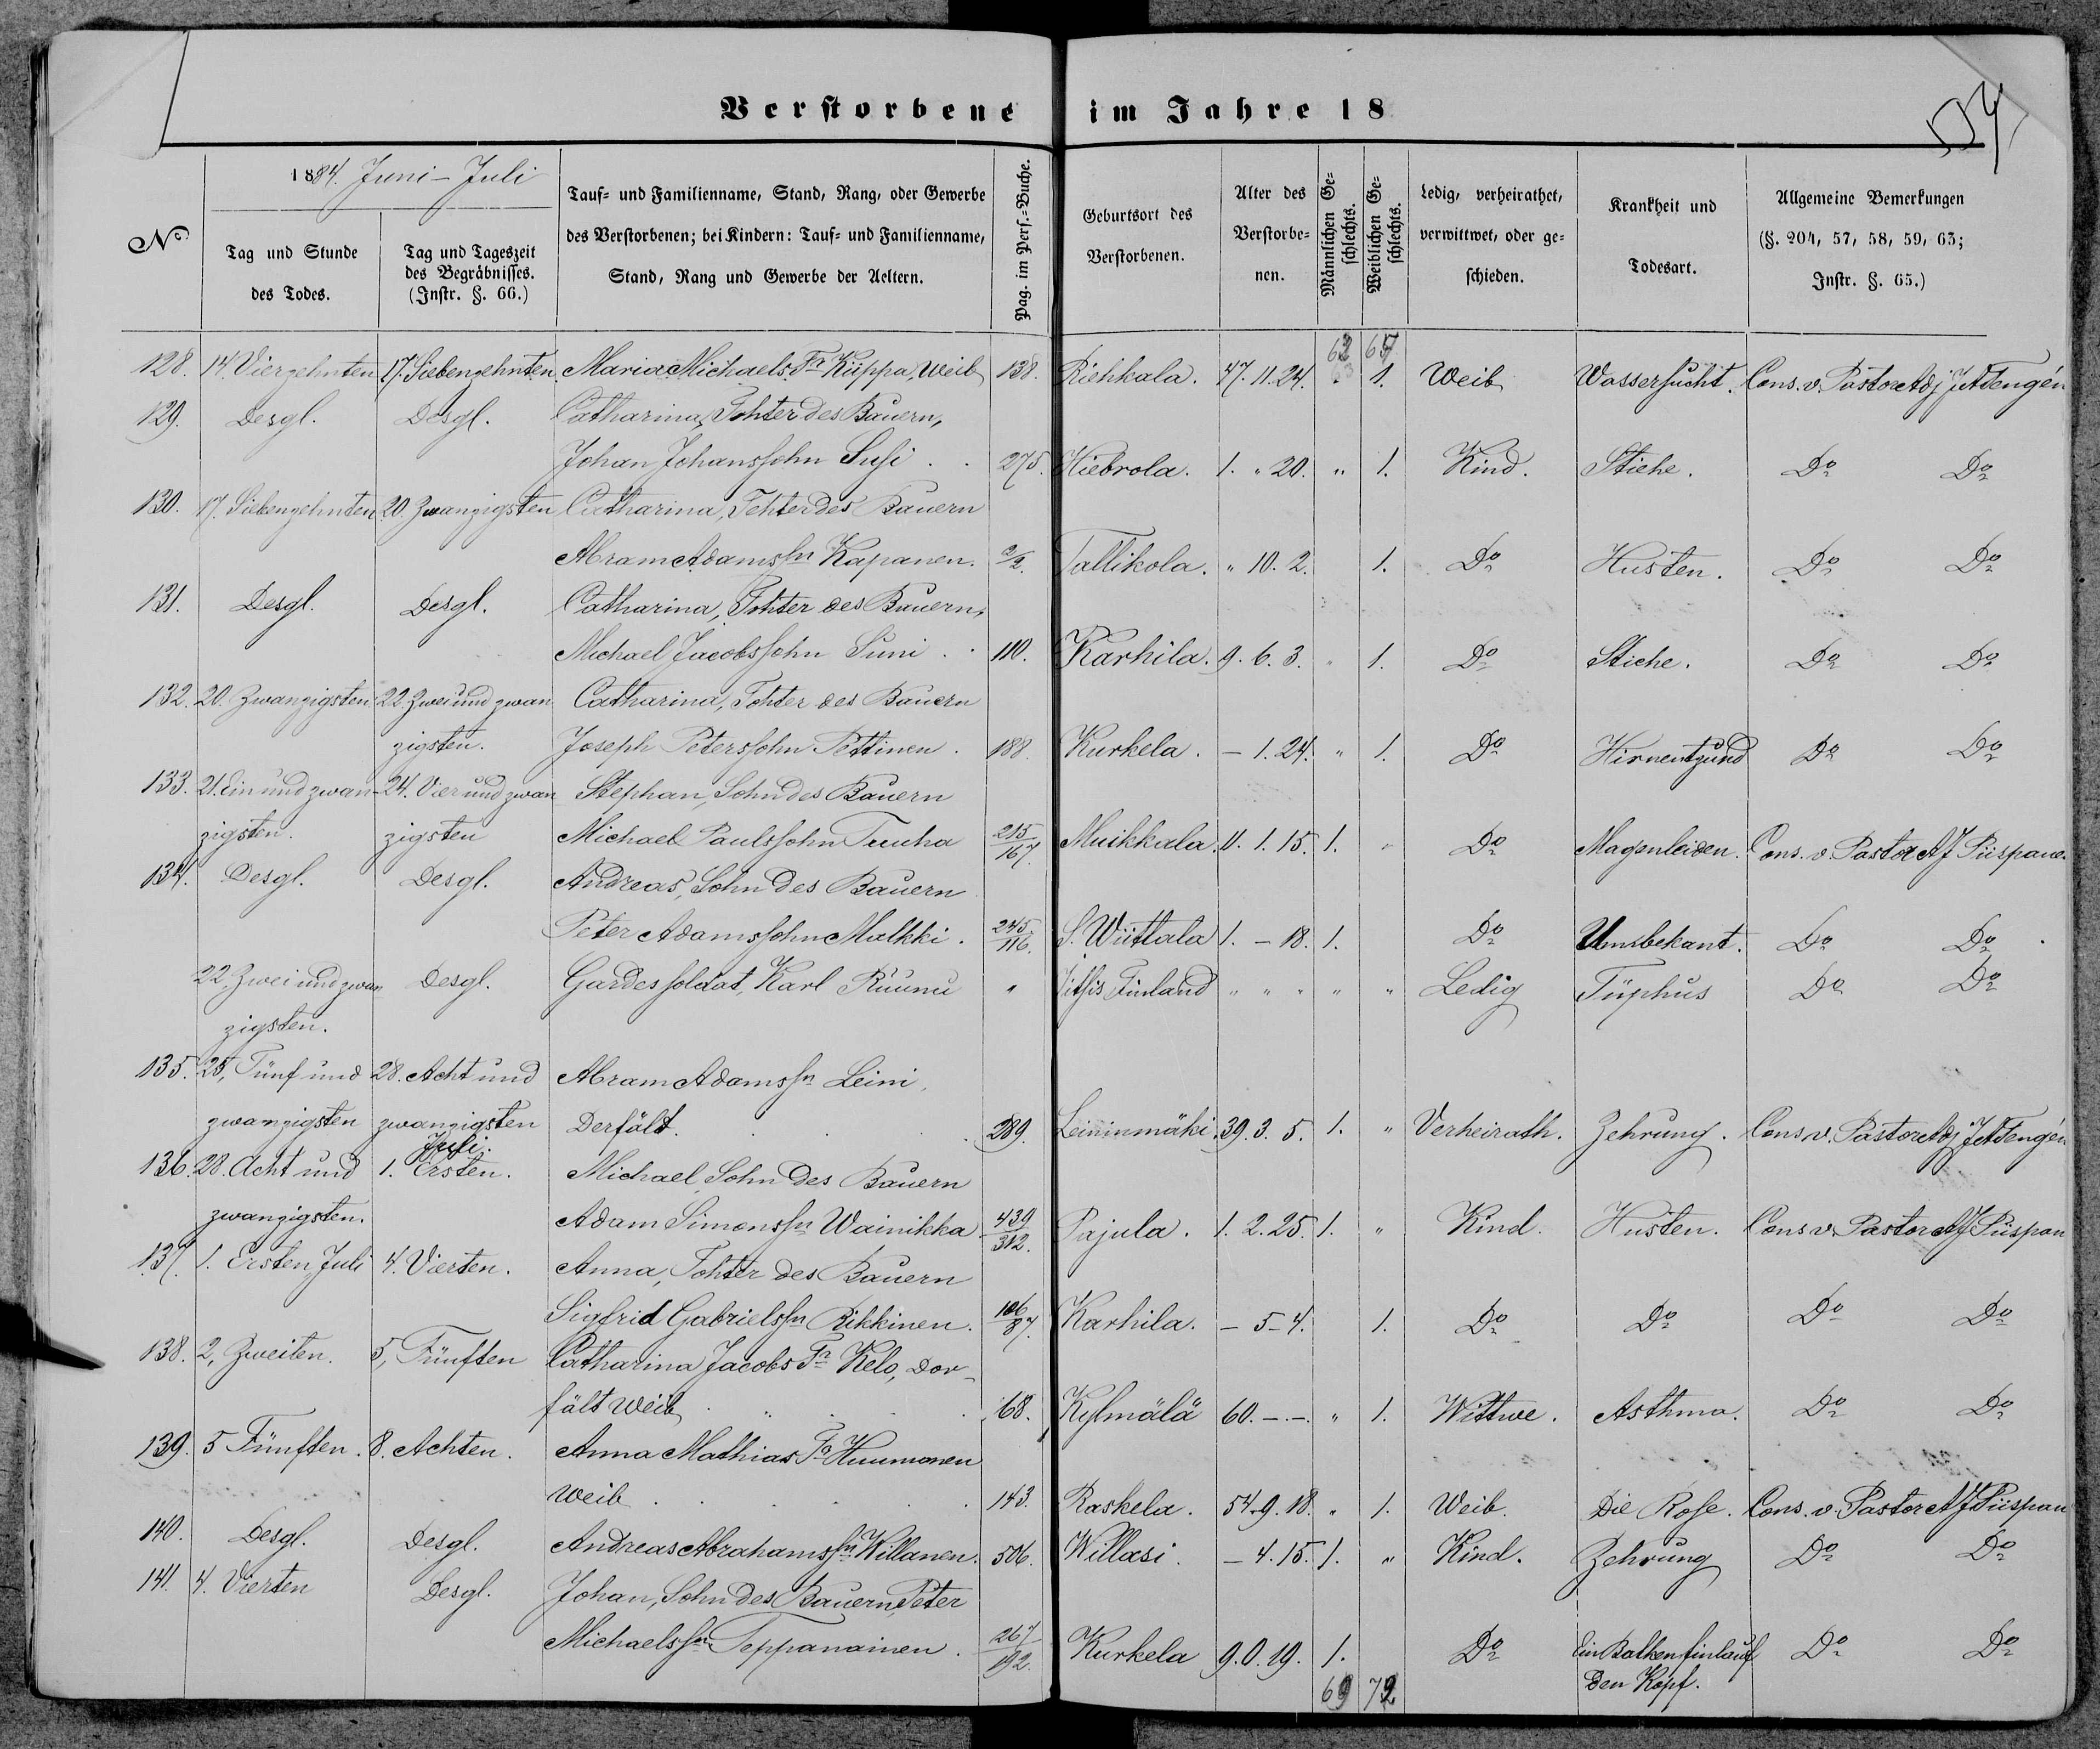 Verstorbene im Jahre 18
1884. Juni - Juli
No
Tag und Stunde des Todes.
Tag und Tageszeit des Begräbnisses. (Instr. §. 66.)
Tauf- und Familienname, Stand, Rang, oder Gewerbe des Verstorbenen; bei Kindern: Tauf- und Familienname, Stand, Rang und Gewerbe der Aeltern.
Pag. im Pers.-Buche.
Geburtsort des Verstorbenen.
Alter des Verstorbenen.
Männlichen Geschlechts.
Weiblichen Geschlechts.
Ledig, verheirathet, verwittwet, oder geschieden.
Krankheit und Todesart.
Allgemeine Bemerkungen (§. 204, 57, 58, 59, 63; Instr. §. 65.)
62 65
128. 14. Vierzehnten 17. Siebenzehnten. Maria Michaels Tr Küppa, Weib 138. Riehkala. 47. 11. 24. 1. Weib Wassersucht. Cons. v. Pastor Adj
129. Desgl. Desgl. Catharina, Tohter des Bauern,
Johan Johanssohn Susi . . 275. Hiebrola. 1. " 20. " 1. Kind. Stiche. Do Do
130. 17. Siebenzehnten 20. Zwanzigsten Catharina, Tohter des Bauern
Abram Adamssn Kapanen. 2/2. Tallikola. " 10. 2. 1. Do Husten. Do Do
131. Desgl. Desgl. Catharina, Tohter des Bauern,
Michael Jacobssohn Suni . . 110. Karhila. 9. 6. 3. " 1. Do Stiche. Do Do
132. 20. Zwanzigsten 22. Zwei und zwan Catharina, Tohter des Bauern
zigsten. Joseph Peterssohn Pettinen . 188. Kurkela. - 1. 24. " 1. Do Hirnentzund Do Do
133. 21. Ein und zwan- 24. Vier und zwan Stephan, Sohn des Bauern
zigsten. zigsten Michael Paulssohn Truha 215/167. Muikkala. 11. 1. 15. 1. " Do Magenleiden. Cons. v. Pastor AJ Piispane
134. Desgl. Desgl. Andreas, Sohn des Bauern
Peter Adamssohn Mulkki . 245/116. S. Wiittala 1. - 18. 1. Do Unsbekant. Do Do
22. Zwei und zwan Desgl. Gardes soldat, Karl Ruunu " Finland " " " " " Ledig Tüphus Do Do
zigsten.
135. 25, Fünf und 28. Acht und Abram Adamssn Leini,
zwanzigsten zwanzigsten Derfält. . . 289. Leininmäki. 39. 3. 5. 1. " Verheirath. Zehrung. Cons. v. Pastor Adj
Juli.
136. 28. Acht und 1. Ersten. Michael, Sohn des Bauern
zwanzigsten. Adam Simonssn Wainikka 439/312. Pajula. 1. 2. 25. 1. " Kind. Husten. Cons v. Pastor AJ Piispan
137. 1. Ersten Juli 4. Vierten. Anna, Tohter des Bauern
Sigfrid Gabrielssn Rikkinen. 106/87. Karhila. - 5 - 4. 1. Do Do Do Do
138. 2, Zweiten. 5, Fünften Catharina Jacobs Tr Kelo, Dor-
fält Weib . . . 168. Kylmälä 60. - . - . " 1. Wittwe. Asthma. Do Do
139. 5 Fünften. 8. Achten. Anna Mathias Tr Huumonen
Weib . . . 143. Raskela. 54. 9. 18. " 1. Weib. Die Rose. Cons. v. Pastor AJ Piispan
140. Desgl. Desgl. Andreas Abrahamssn Willanen. 506. Willasi. - 4. 15. 1. " Kind. Zehrung Do Do
141. 4. Vierten Desgl. Johan, Sohn des Bauern, Peter
Michaelssn Teppanainen . 267/192. Kurkela 9. 0. 19. 1. Do Ein Balken auf Do Do
den Kopf.
69 72